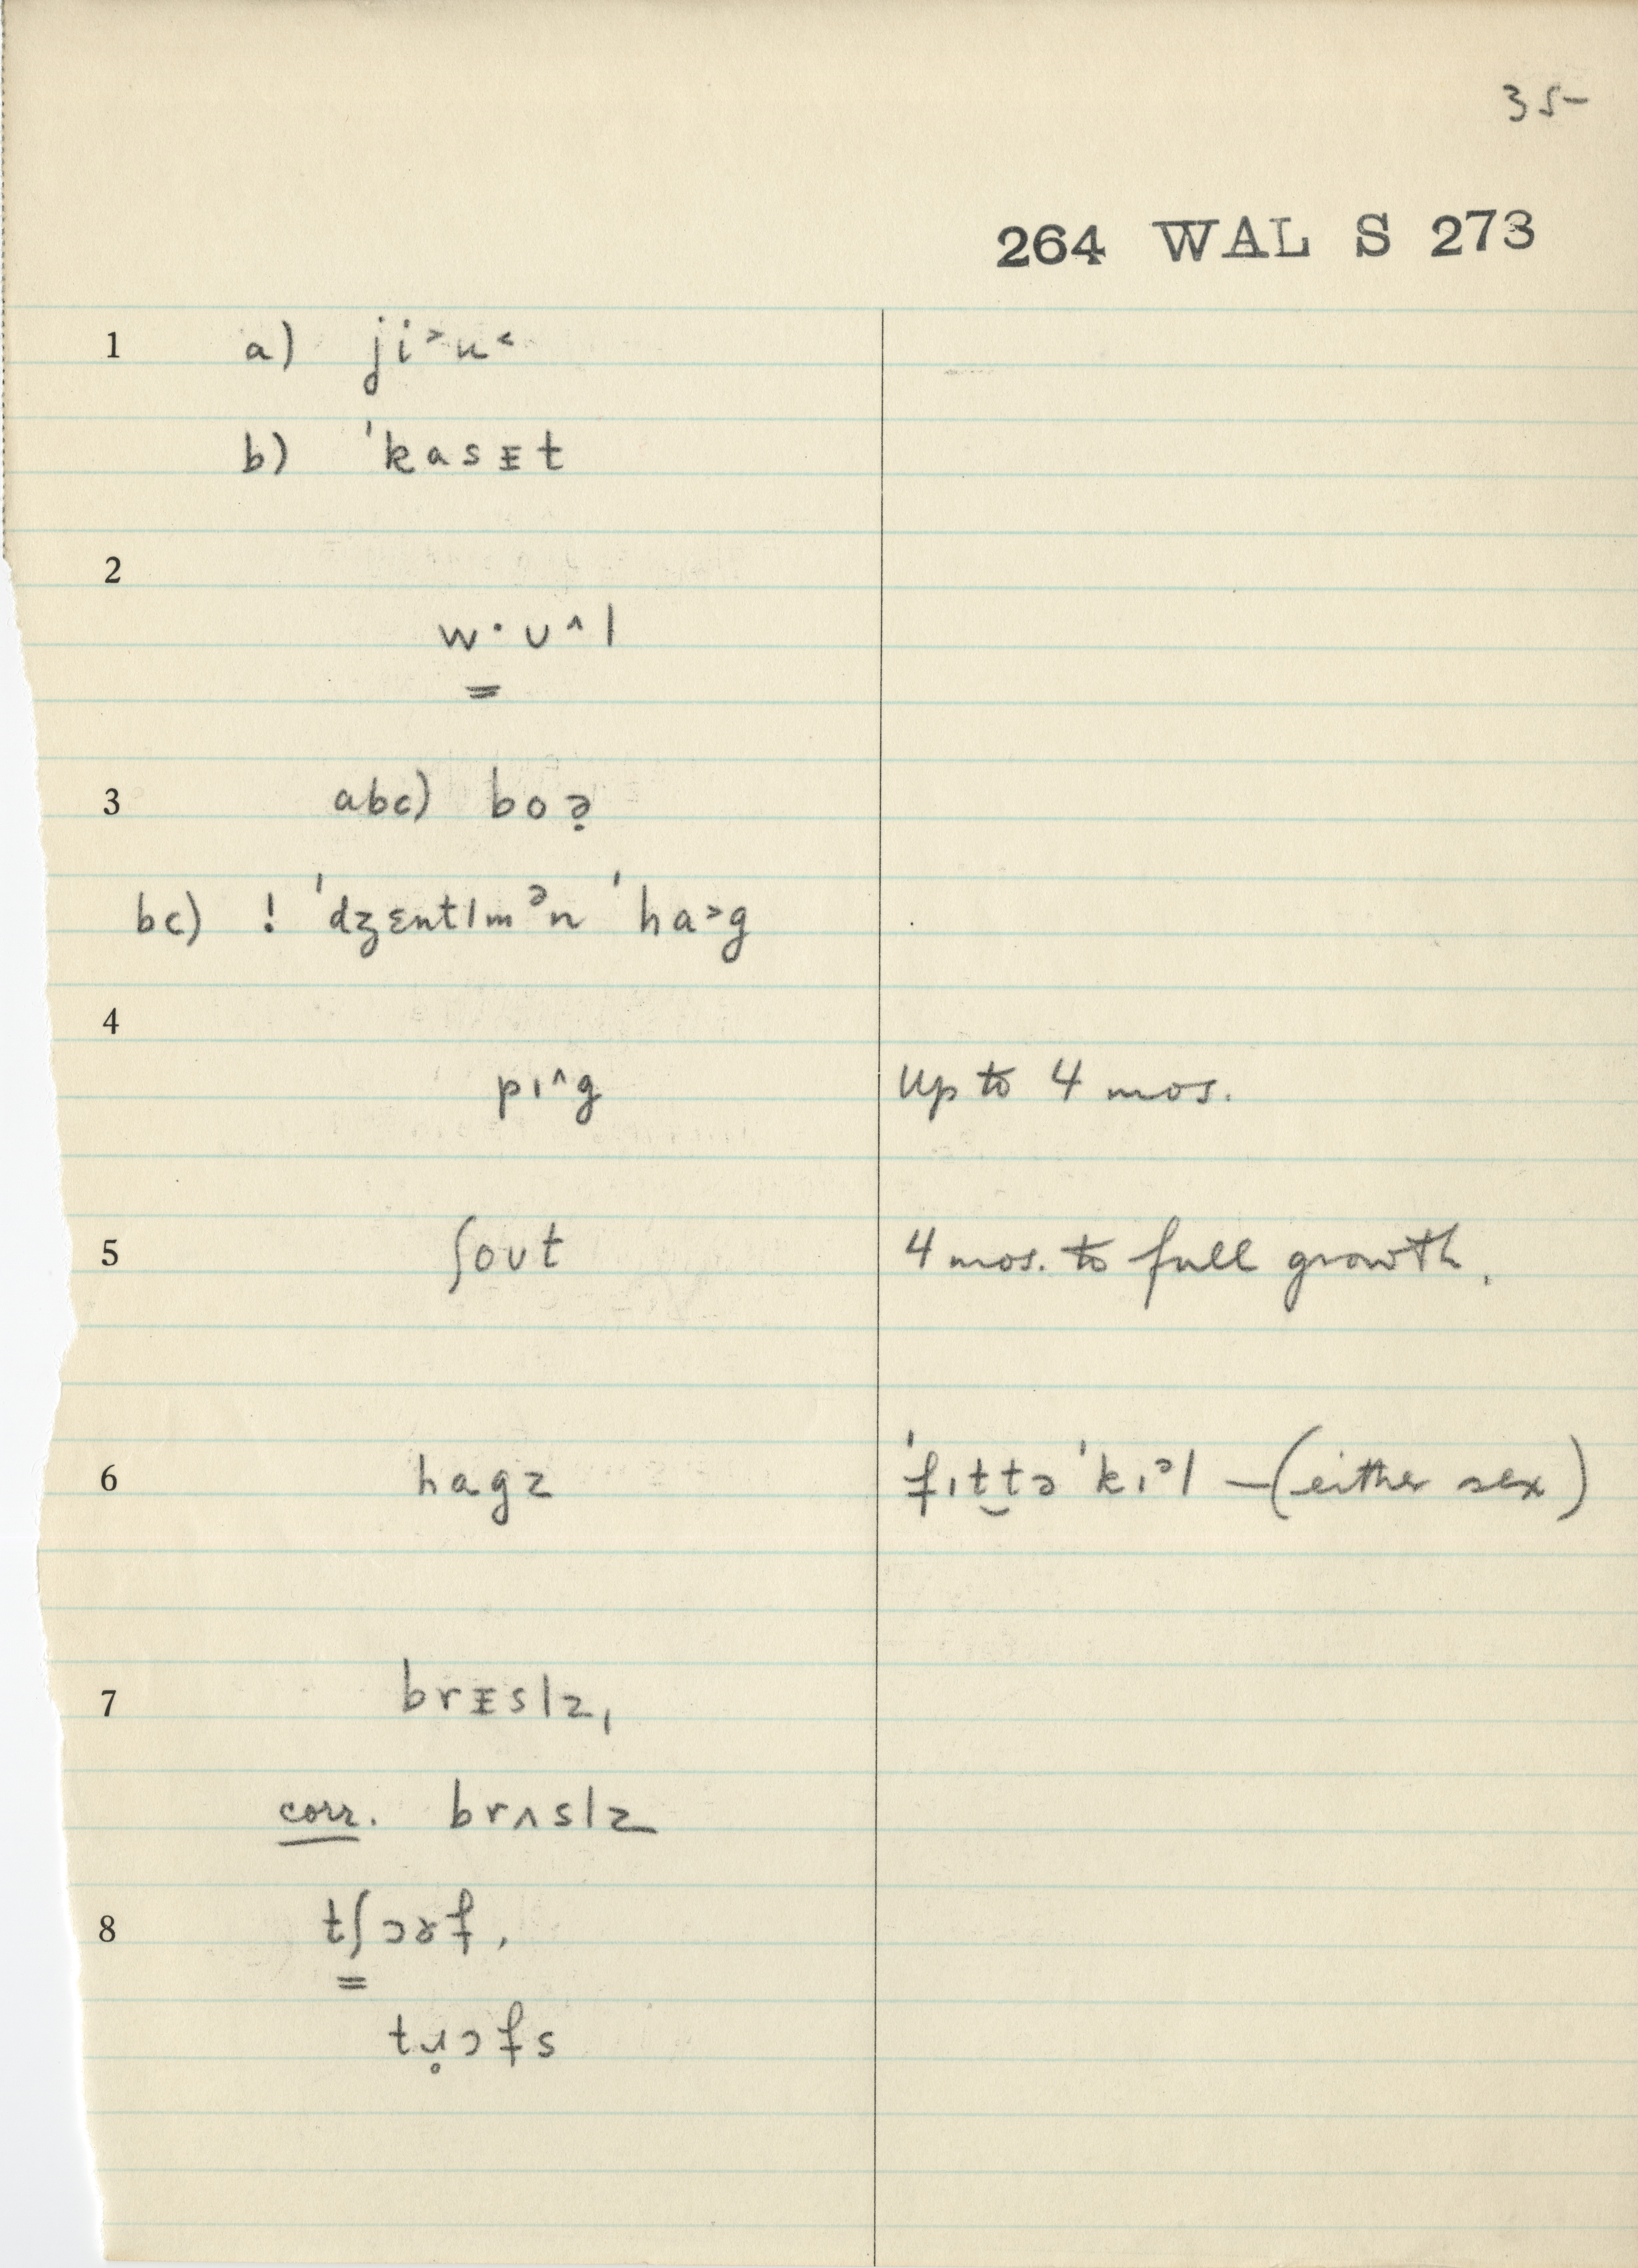 35-
264 WAL S 273
1 a) ji˃u˂
b) ˈkasᴇt
2
w·ʊ^l
=
3 abc) boə̣
bc) ! ˈdʒɛntlmᵊn ˈha˃g
4
pɪ^g up to 4 mos.
5 ʃoʊt 4 mos. to full growth.
6 hagz ˈfɪt̬tə ˈkɪᵊl — (either sex)
7 brᴇslz,
corr. brʌslz
8 tʃɔɚf,
=
tɹ̥ɔfs